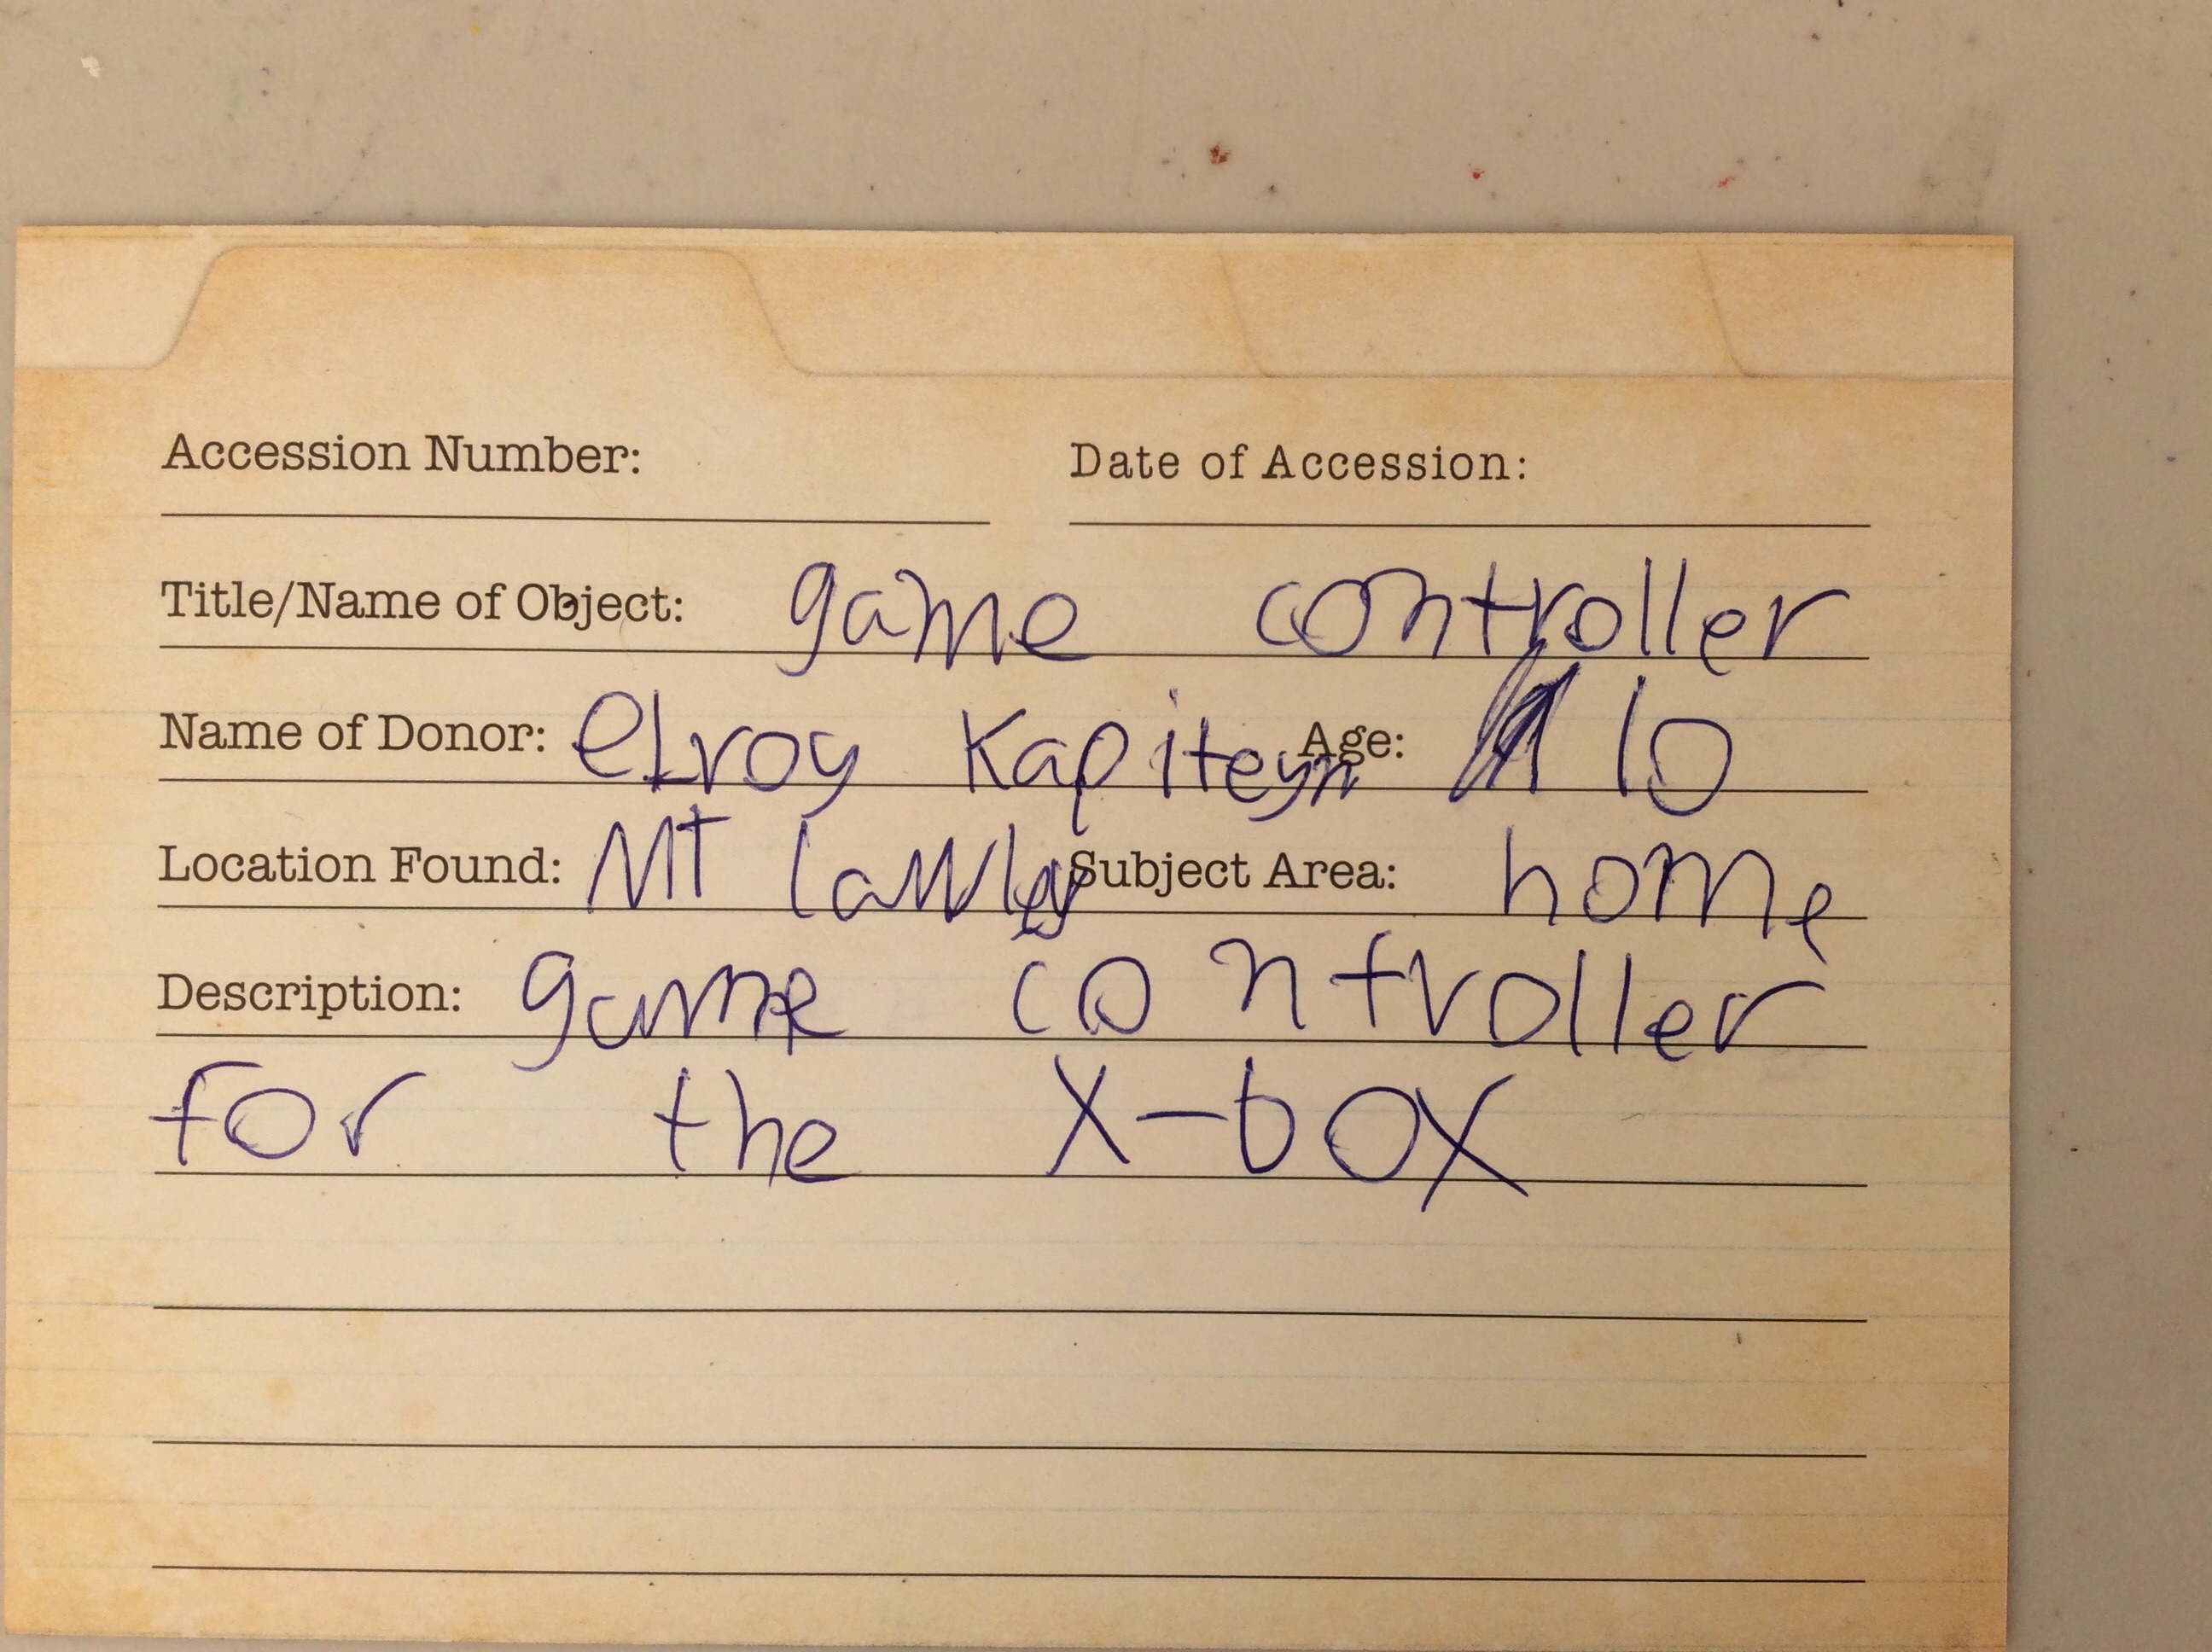 Accession Number: Date of Accession:
Title/Name of Object: game controller
Name of Donor: elroy Kapiteyn Age: 10
Location Found: MT lawley Subject Area: home
Description: game controller
for the X-box